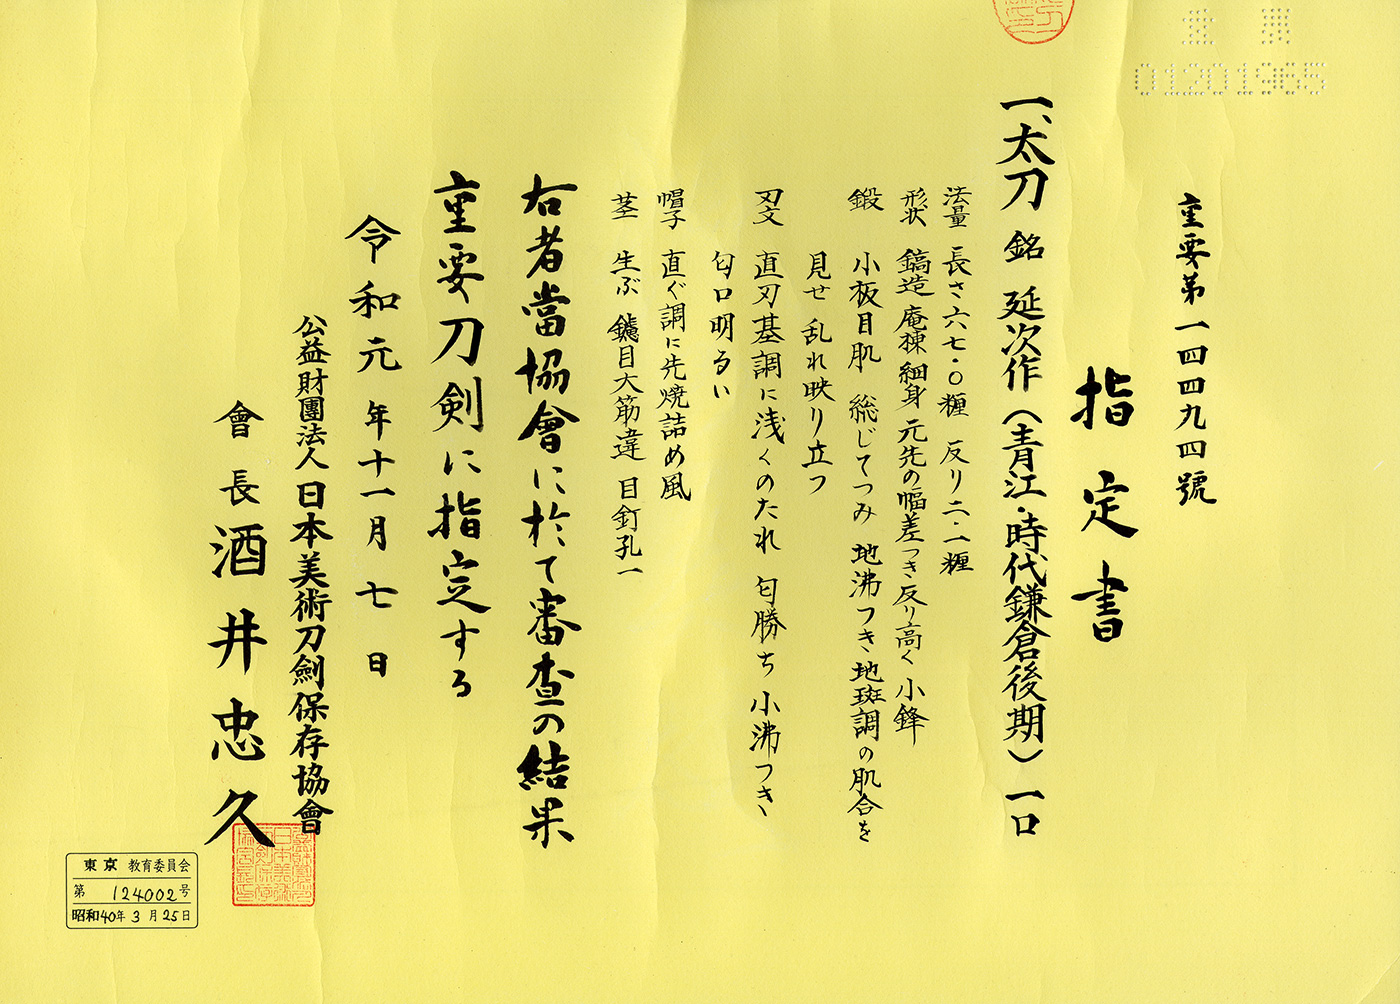 重要第一四四九四號
指定書
一、太刀 銘 延次作(青江・時代鎌倉後期) 一口
法量 長さ六七・〇糎 反り二・一糎
形状 鎬造 庵棟 細身 元先の幅差つき 反り高く 小鋒
鍛 小板目肌 総じてつみ 地沸つき、地斑調の肌合を
見せ 乱れ映り立つ
刃文 直刃基調に浅くのたれ 匂勝ち 小沸つき、
匂口明るい
帽子 直ぐ調に先焼詰め風
茎 生ぶ 鑢目大筋違 目釘孔一
右者當協會に於て審査の結果
重要刀剣に指定する
令和元年十一月七日
公益財團法人 日本美術刀劍保存協會
會長 酒井忠久
東京 教育委員会
第 124002号
昭和40年3月25日
01201965